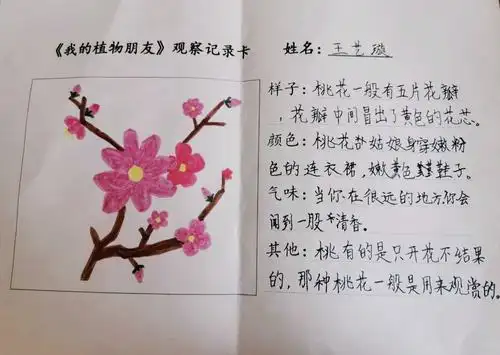 《我的植物朋友》观察记录卡
姓名：王艺璇
样子：桃花一般有五片花瓣
，花瓣中间冒出了黄色的花芯。
颜色：桃花姑娘身穿嫩粉
色的连衣裙，嫩黄色鞋子。
气味：当你在很远的地方你会
闻到一股清香。
其他：桃有的是只开花不结果
的，那种桃花一般是用来观赏的。